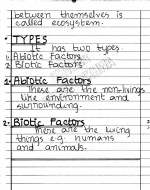 between themselves is
called ecosystem.
• TYPES
It has two types.
1. Abiotic Factors
2. Biotic Factors
1. Abiotic Factors
These are the non-livings
like environment and
surrounding.
2. Biotic Factors
There are the living
things e.g. humans
and animals.